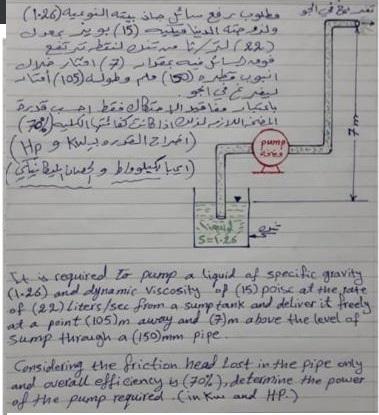 تفريغ في الجو
مطلوب رفع سائل جاذبيته النوعية (1.26)
ولزوجته الديناميكية (15) بويز بمعدل
(22) لتر/ثا من تنك لنقطة ترتفع
فوقه بمقدار (7) امتار خلال
انبوب قطره (150) ملم وطوله (105) امتار
ليفرغ في الجو.
باعتبار مفاقيد الاحتكاك فقط احسب قدرة
المضخة اللازمة لذلك اذا كانت كفائتها الكلية (70%)
(اخراج القدرة بـ Kw و Hp)
(اي بالكيلوواط و الحصان الميكانيكي)
7m
pump
مضخة
liquid
S=1.26
It is required to pump a liquid of specific gravity
(1.26) and dynamic viscosity of (15) poise at the rate
of (22) liters/sec from a sump tank and deliver it freely
at a point (105)m away and (7)m above the level of
sump through a (150)mm pipe.
Considering the friction head lost in the pipe only
and overall efficiency is (70%), determine the power
of the pump required. (in Kw and HP.)